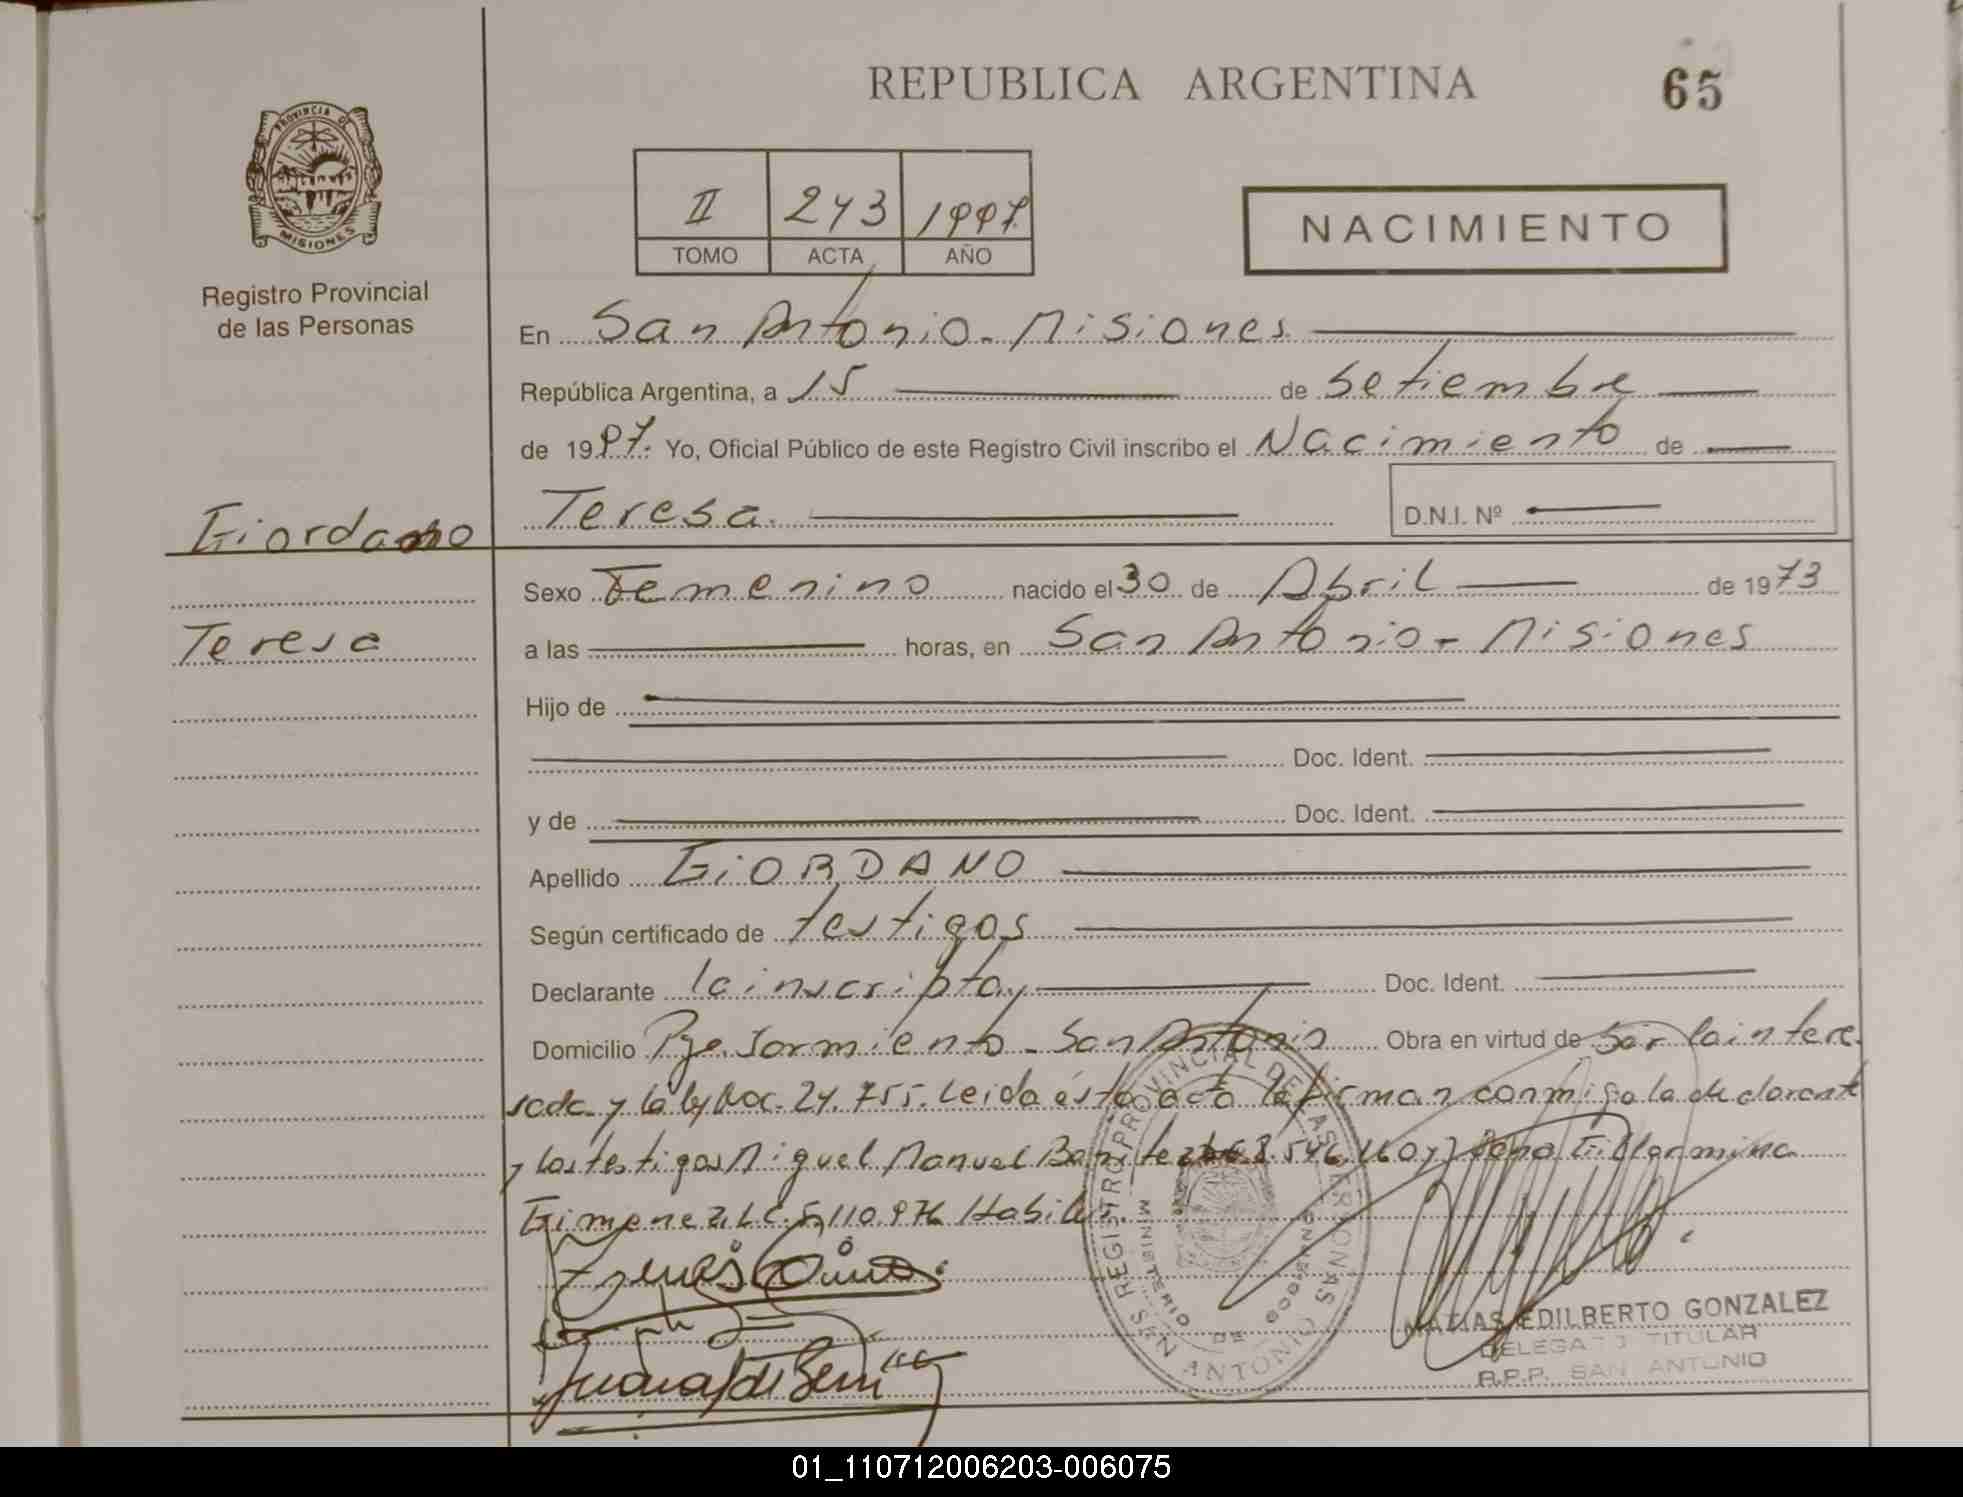 REPUBLICA ARGENTINA
65
PROVINCIA DE MISIONES
Registro Provincial
de las Personas
II 243 1997
TOMO ACTA AÑO
NACIMIENTO
En San Antonio - Misiones
República Argentina, a 15 de Setiembre
de 1997. Yo, Oficial Público de este Registro Civil inscribo el Nacimiento de
Giordano
Teresa
D.N.I. Nº
Sexo Femenino nacido el 30 de Abril de 1973
Teresa
a las horas, en San Antonio - Misiones
Hijo de
Doc. Ident.
y de Doc. Ident.
Apellido GIORDANO
Según certificado de testigos
Declarante la inscripta, Doc. Ident.
Domicilio Pje. Sarmiento - San Antonio Obra en virtud de ser la intere
sada y la ley Nac. 24.755. Leida ésta acta la firman conmigo la declarante
y los testigos Miguel Manuel Benitez 8.546.160 y Gillermina
Gimenez L.C. 5.110.976 Habiles.
REGISTRO PROVINCIAL DE LAS PERSONAS
MINISTERIO DE GOBIERNO
SAN ANTONIO
MATIAS EDILBERTO GONZALEZ
DELEGADO TITULAR
R.P.P. SAN ANTONIO
01_110712006203-006075